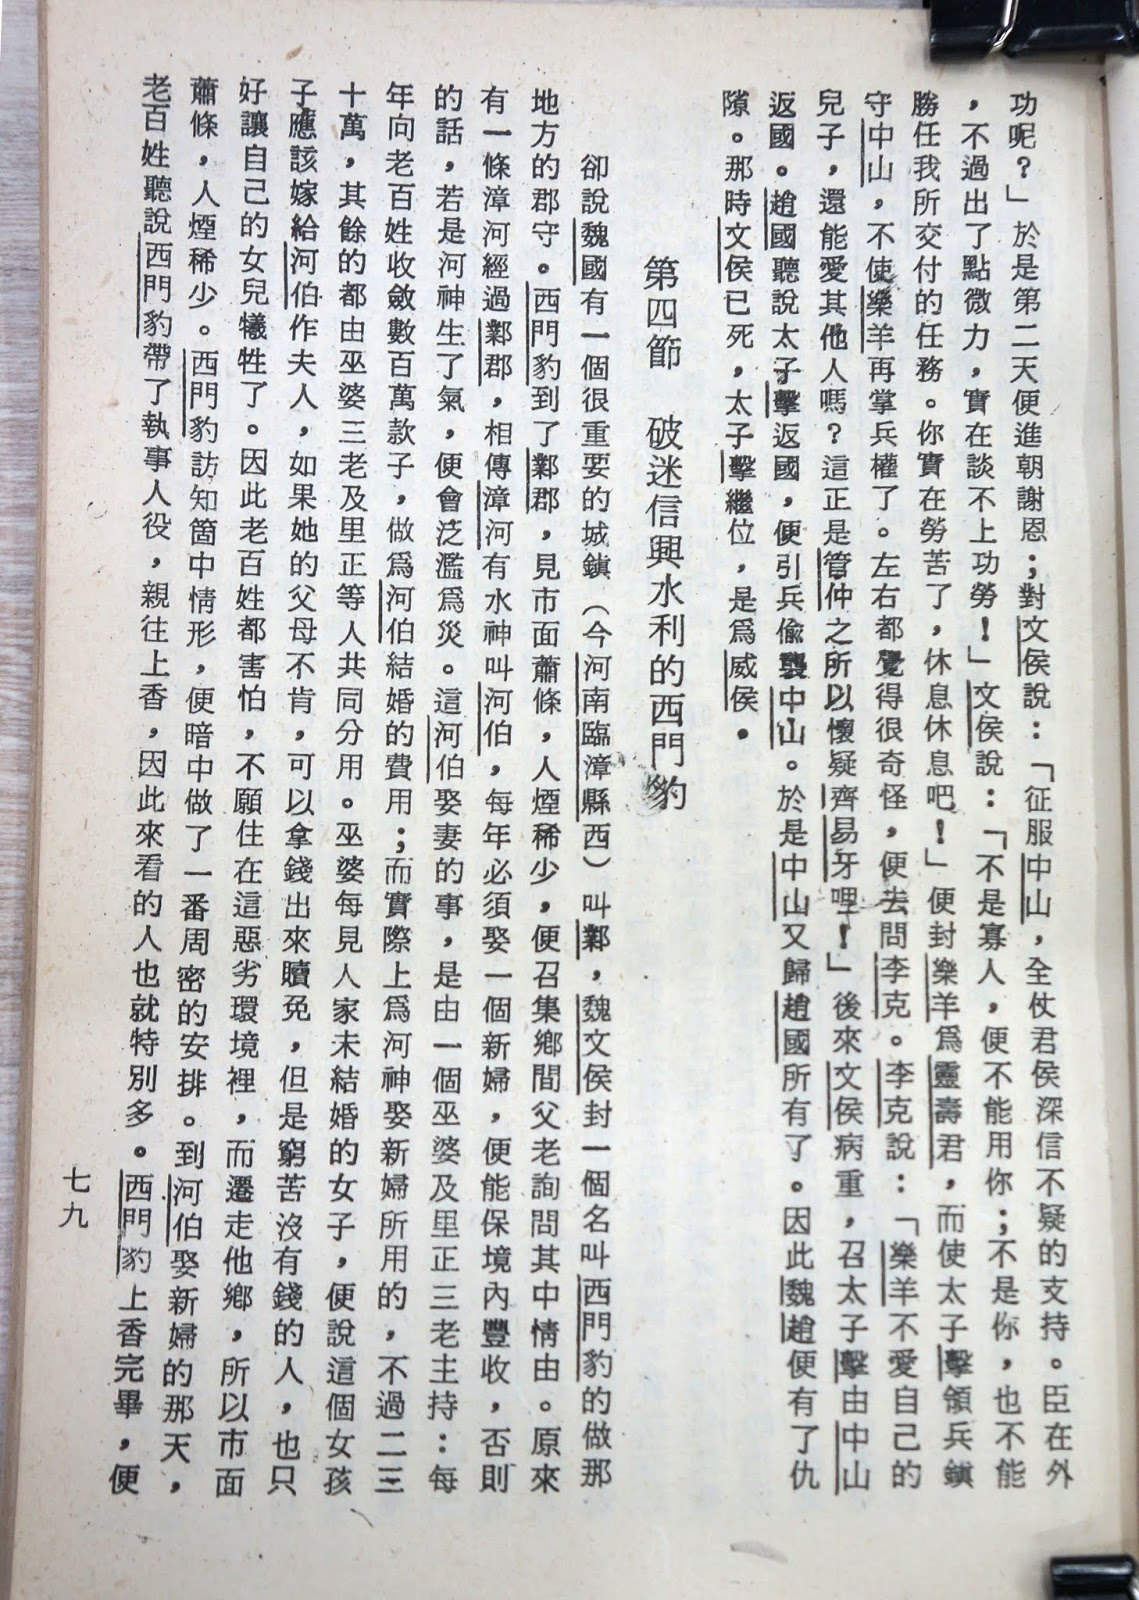 功呢？」於是第二天便進朝謝恩；對文侯說：「征服中山，全仗君侯深信不疑的支持。臣在外
，不過出了點微力，實在談不上功勞！」文侯說：「不是寡人，便不能用你；不是你，也不能
勝任我所交付的任務。你實在勞苦了，休息休息吧！」便封樂羊爲靈壽君，而使太子擊領兵鎮
守中山，不使樂羊再掌兵權了。左右都覺得很奇怪，便去問李克。李克說：「樂羊不愛自己的
兒子，還能愛其他人嗎？這正是管仲之所以懷疑齊易牙哩！」後來文侯病重，召太子擊由中山
返國。趙國聽說太子擊返國，便引兵偸襲中山。於是中山又歸趙國所有了。因此魏趙便有了仇
隙。那時文侯已死，太子擊繼位，是爲威侯。
第四節　破迷信興水利的西門豹
卻說魏國有一個很重要的城鎮（今河南臨漳縣西）叫鄴，魏文侯封一個名叫西門豹的做那
地方的郡守。西門豹到了鄴郡，見市面蕭條，人煙稀少，便召集鄉間父老詢問其中情由。原來
有一條漳河經過鄴郡，相傳漳河有水神叫河伯，每年必須娶一個新婦，便能保境內豐收，否則
的話，若是河神生了氣，便會泛濫爲災。這河伯娶妻的事，是由一個巫婆及里正三老主持：每
年向老百姓收斂數百萬款子，做爲河伯結婚的費用；而實際上爲河神娶新婦所用的，不過二三
十萬，其餘的都由巫婆三老及里正等人共同分用。巫婆每見人家未結婚的女子，便說這個女孩
子應該嫁給河伯作夫人，如果她的父母不肯，可以拿錢出來贖免，但是窮苦沒有錢的人，也只
好讓自己的女兒犧牲了。因此老百姓都害怕，不願住在這惡劣環境裡，而遷走他鄉，所以市面
蕭條，人煙稀少。西門豹訪知箇中情形，便暗中做了一番周密的安排。到河伯娶新婦的那天，
老百姓聽說西門豹帶了執事人役，親往上香，因此來看的人也就特別多。西門豹上香完畢，便
七九